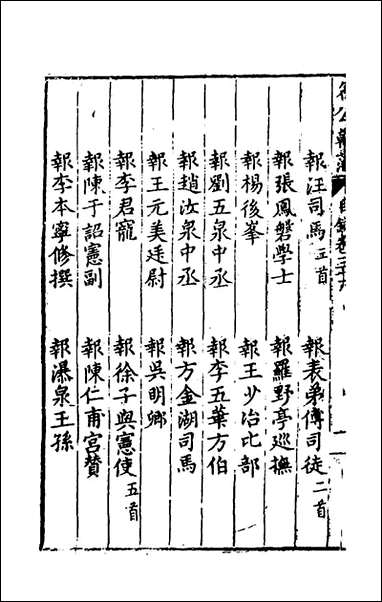 報汪司馬五首 報表弟傅司徒二首
報張鳳磐學士 報羅野亭巡撫
報楊後峯 報王少冶比部
報劉五泉中丞 報李五華方伯
報趙汝泉中丞 報方金湖司馬
報王元美廷尉 報吳明卿
報李君寵 報徐子與憲使五首
報陳于詔憲副 報陳仁甫宮贊
報李本寧修撰 報瀑泉王孫